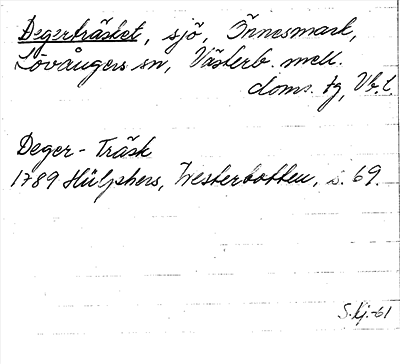 Degerträsket, sjö, Önnesmark,
Lövångers sn, Västerb. mell.
doms. tg, Vb. l.
Deger - Träsk
1789 Hülphers, Westerbotten, s. 69.
S. Lj. -61